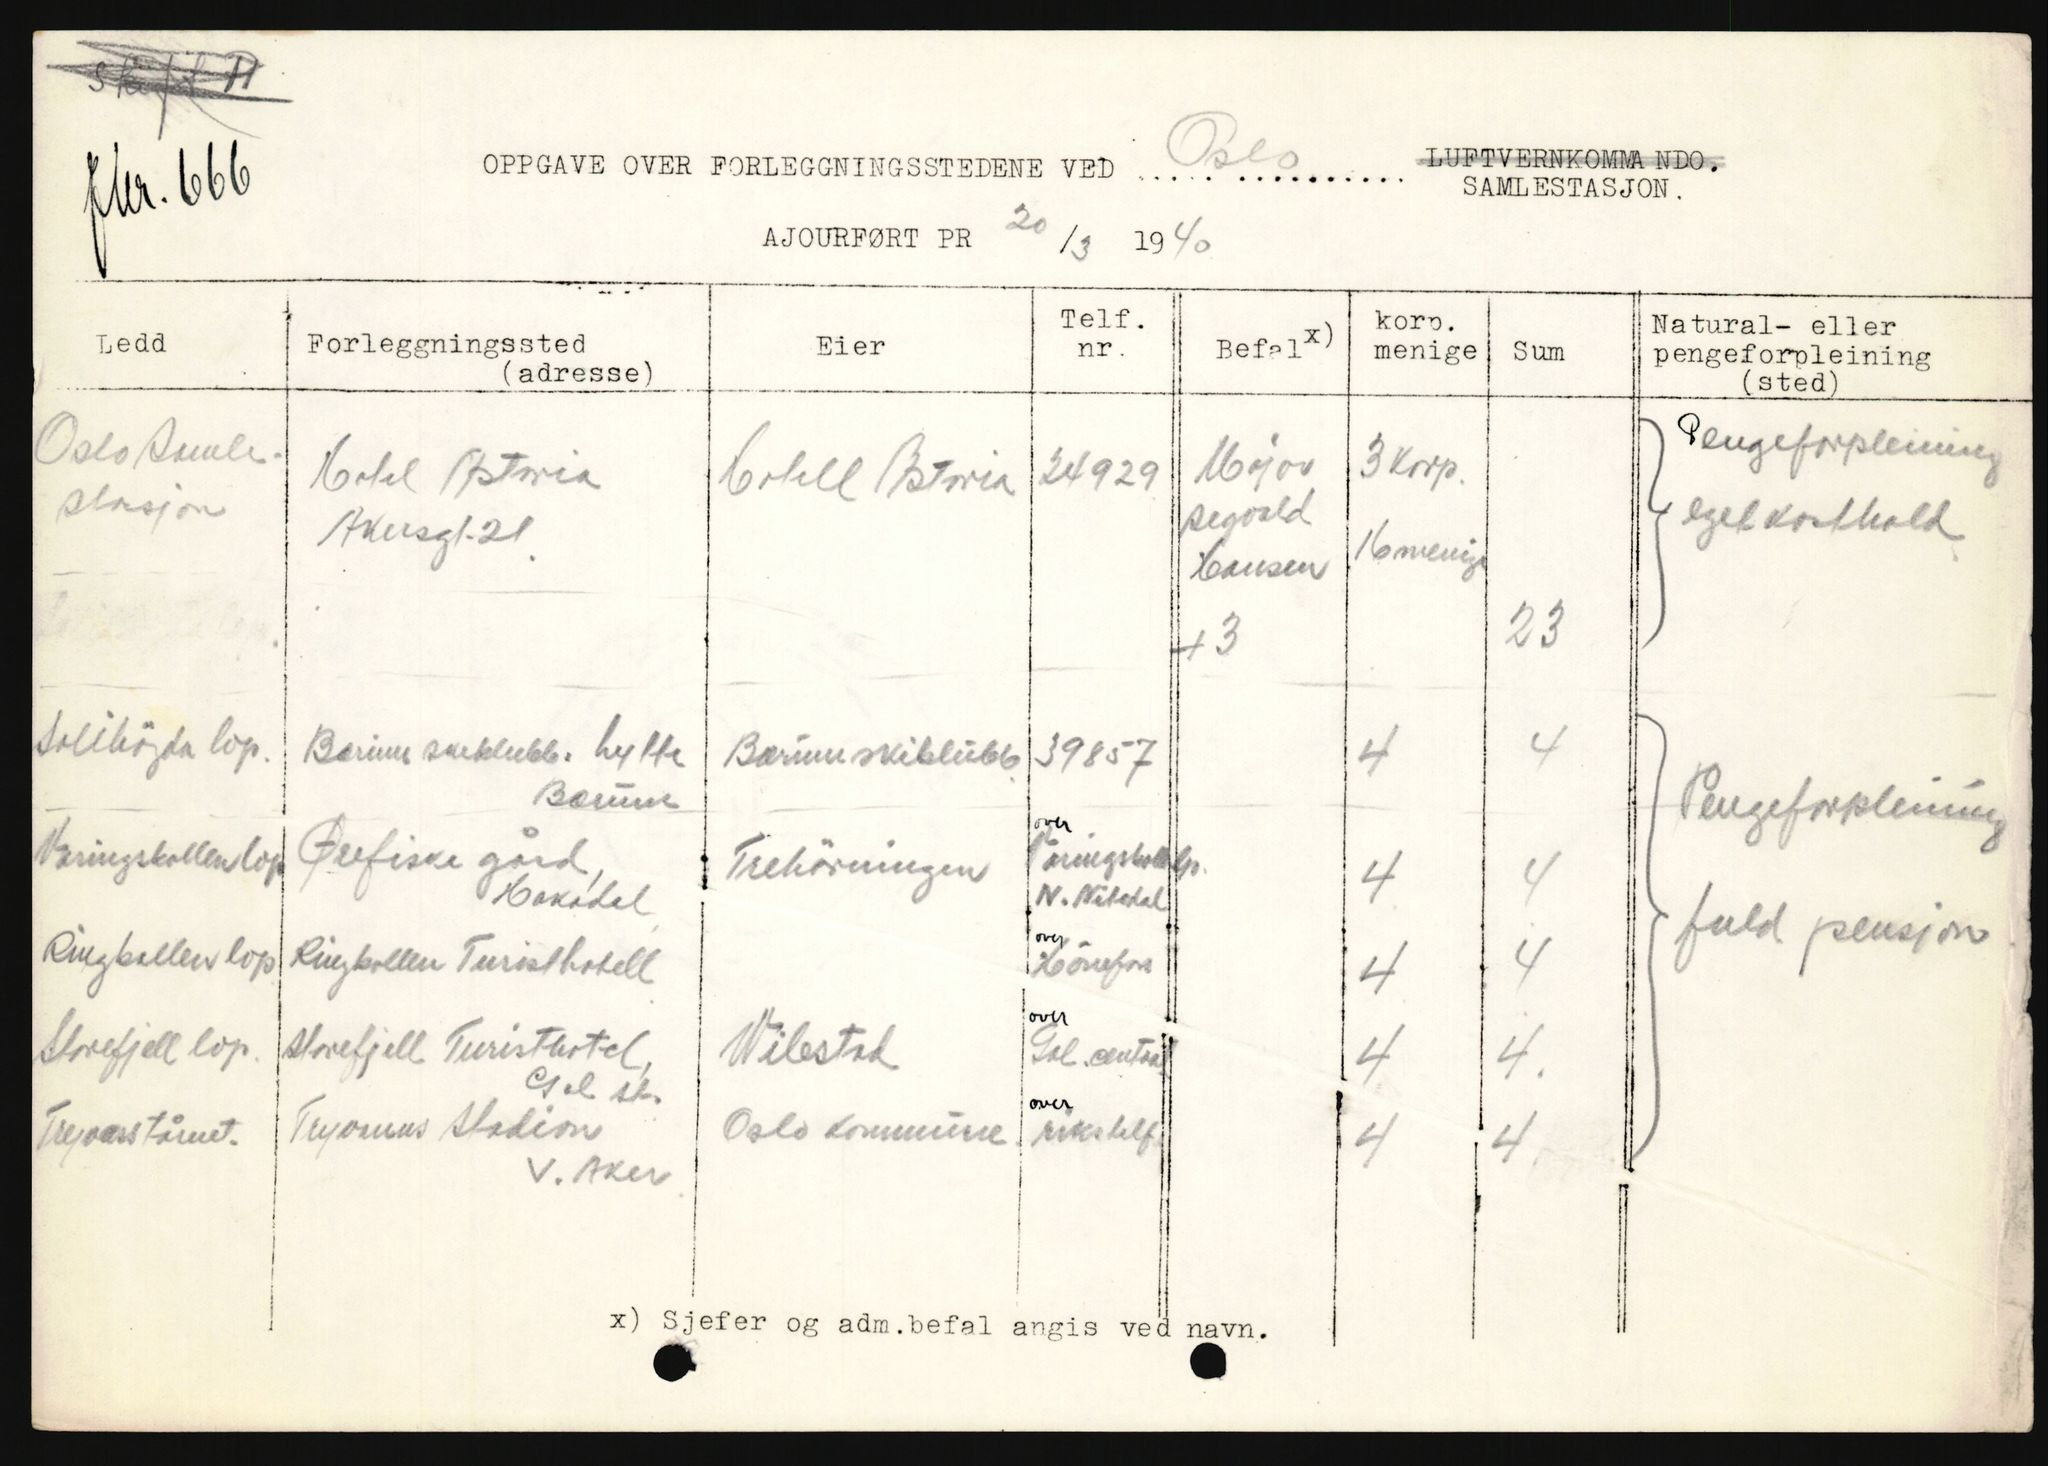 Jnr. 666
OPPGAVE OVER FORLEGGNINGSSTEDENE VED ..... Oslo .......... LUFTVERNKOMMANDO.
SAMLESTASJON.
AJOURFØRT PR 20/3 1940
Ledd
Forleggningssted
(adresse)
Eier
Telf.
nr.
Befal x)
korp.
menige
Sum
Natural- eller
pengeforpleining
(sted)
Oslo Samle-
stasjon
Hotel Astoria
Akersgt. 21.
Hotell Astoria
24929
Major
Segvald
Hansen
+3
3 korp.
16 menige
23
Pengeforpleining
eget kosthold
Sollihögda lop.
Bærum skiklubb. hytte
Bærum
Bærum skiklubb
39857
4
4
Pengeforpleining
full pensjon
Væringskollen lop
Ørefiske gård,
Hakadal
Trehörningen
over
Væringskoll lp.
N. Nitedal
4
4
Ringkollen lop
Ringkollen Turisthotell
over
Hönefos
4
4
Storefjell lop.
Storefjell Turisthotel,
Gol st.
Wibestad
over
Gol central
4
4.
Tryvasstårnet.
Tryvanns Stadion
V. Aker
Oslo kommune.
over
rikstelf.
4
4.
x) Sjefer og adm.befal angis ved navn.